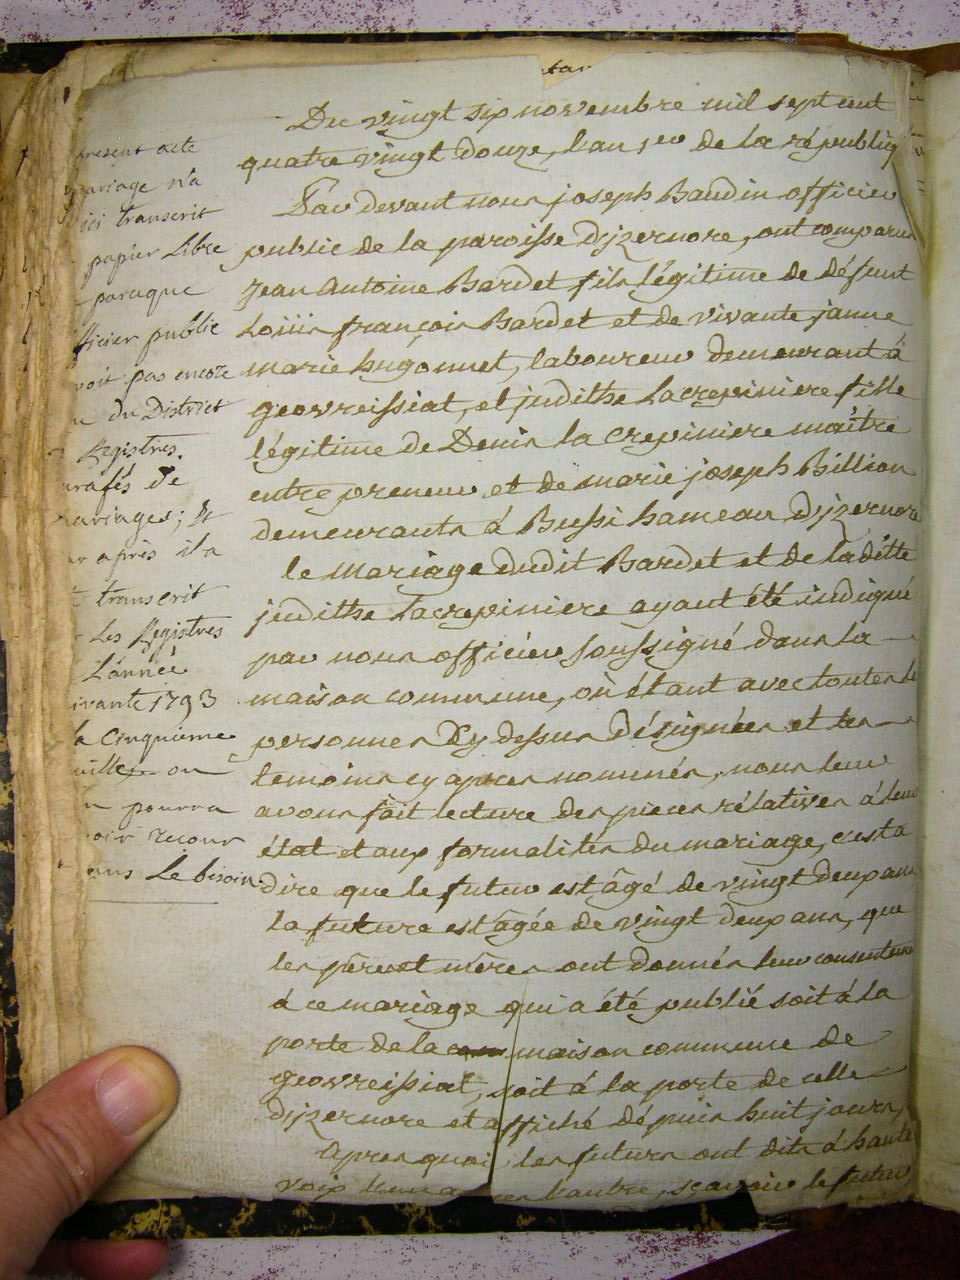 Du vingt six novembre mil sept cent
quatre vingt douze, l'an 1er de la républiq
Par devant nous joseph Baudin officier
public de la paroisse d'jzernore, ont comparu
Jean Antoine Bardet fils légitime de défunt
Loüis françois Bardet et de vivante janne
marie hugonnet, laboureur demeurant à
geovreissiat, et judithe Lacrepiniere fille
légitime de Denis la Crepiniere maître
entrepreneur et de marie joseph Billion
demeurants á Bussi hameau d'jzernore
le mariage dudit Bardet et de laditte
judithe Lacrepiniere ayant été indiqué
par nous officier soussigné dans la
maison commune, où étant avec toutes les
personnes cy dessus désignées et les
temoins cy apres nommés, nous leur
avons fait lecture des pieces rélatives á leur
état et aux formalites du mariage, c'est a
dire que le futur est âgé de vingt deux ans
la future est âgée de vingt deux ans, que
les pères et mères ont donnés leur consenteme
á ce mariage qui a été publié soit á la
porte de la maison commune de
geovreissiat, soit á la porte de celle
d'jzernore et affiché dépuis huit jours,
Apres quoi les futurs ont dits á haute
voix l'un a l'autre, sçavoir le futur
present acte
mariage n'a
ici transcrit
papier Libre
paraque
fficier public
voit pas encore
du District
Registres
rafés de
mariages; &
r après il a
transcrit
Les Registres
L'année
ivante 1793
la Cinquieme
uille on
n pourra
oir recour
ans Le besoin